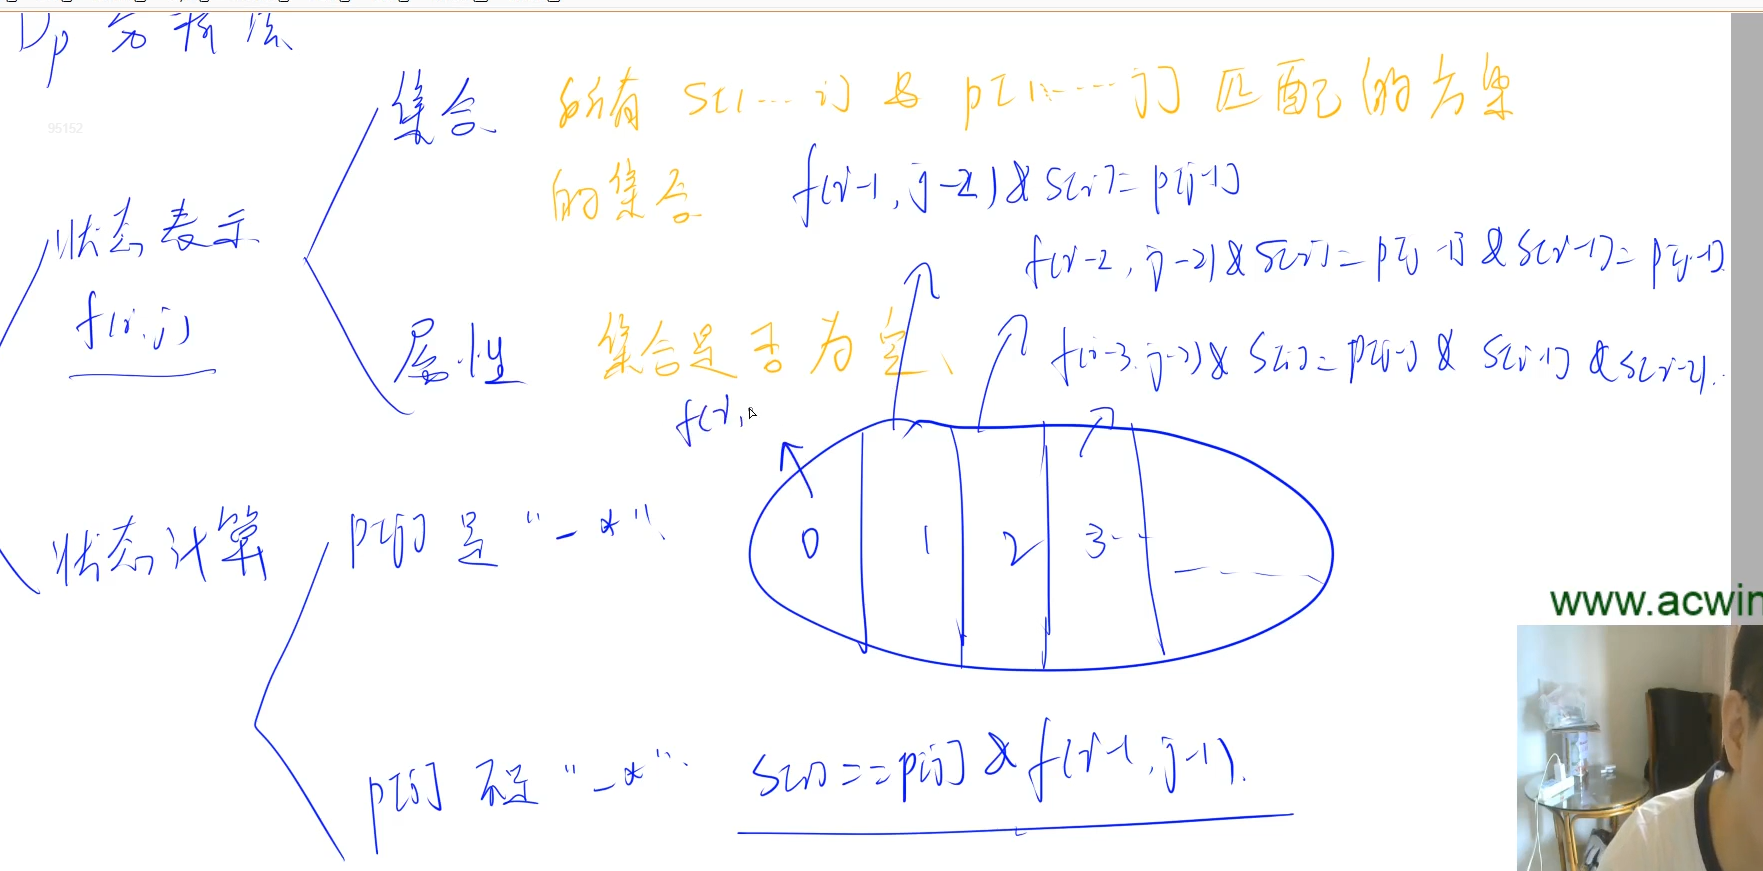 Dp 分析法
集合 所有 S[1····i] 与 p[1·····j] 匹配的方案
95152
的集合 f(i-1, j-2) & S[i] = p[j-1]
状态表示 f(i-2, j-2) & S[i] = p[j-1] & S[i-1] = p[j-1]
f(i,j)
属性 集合是否为空、 f(i-3, j-2) & S[i] = p[j-1] & S[i-1] & S[i-2]..
f(i,
状态计算 p[j] 是 "-*". 0 1 2 3··
www.acwin
p[j] 不是 "-*". S[i] == p[j] & f(i-1, j-1).